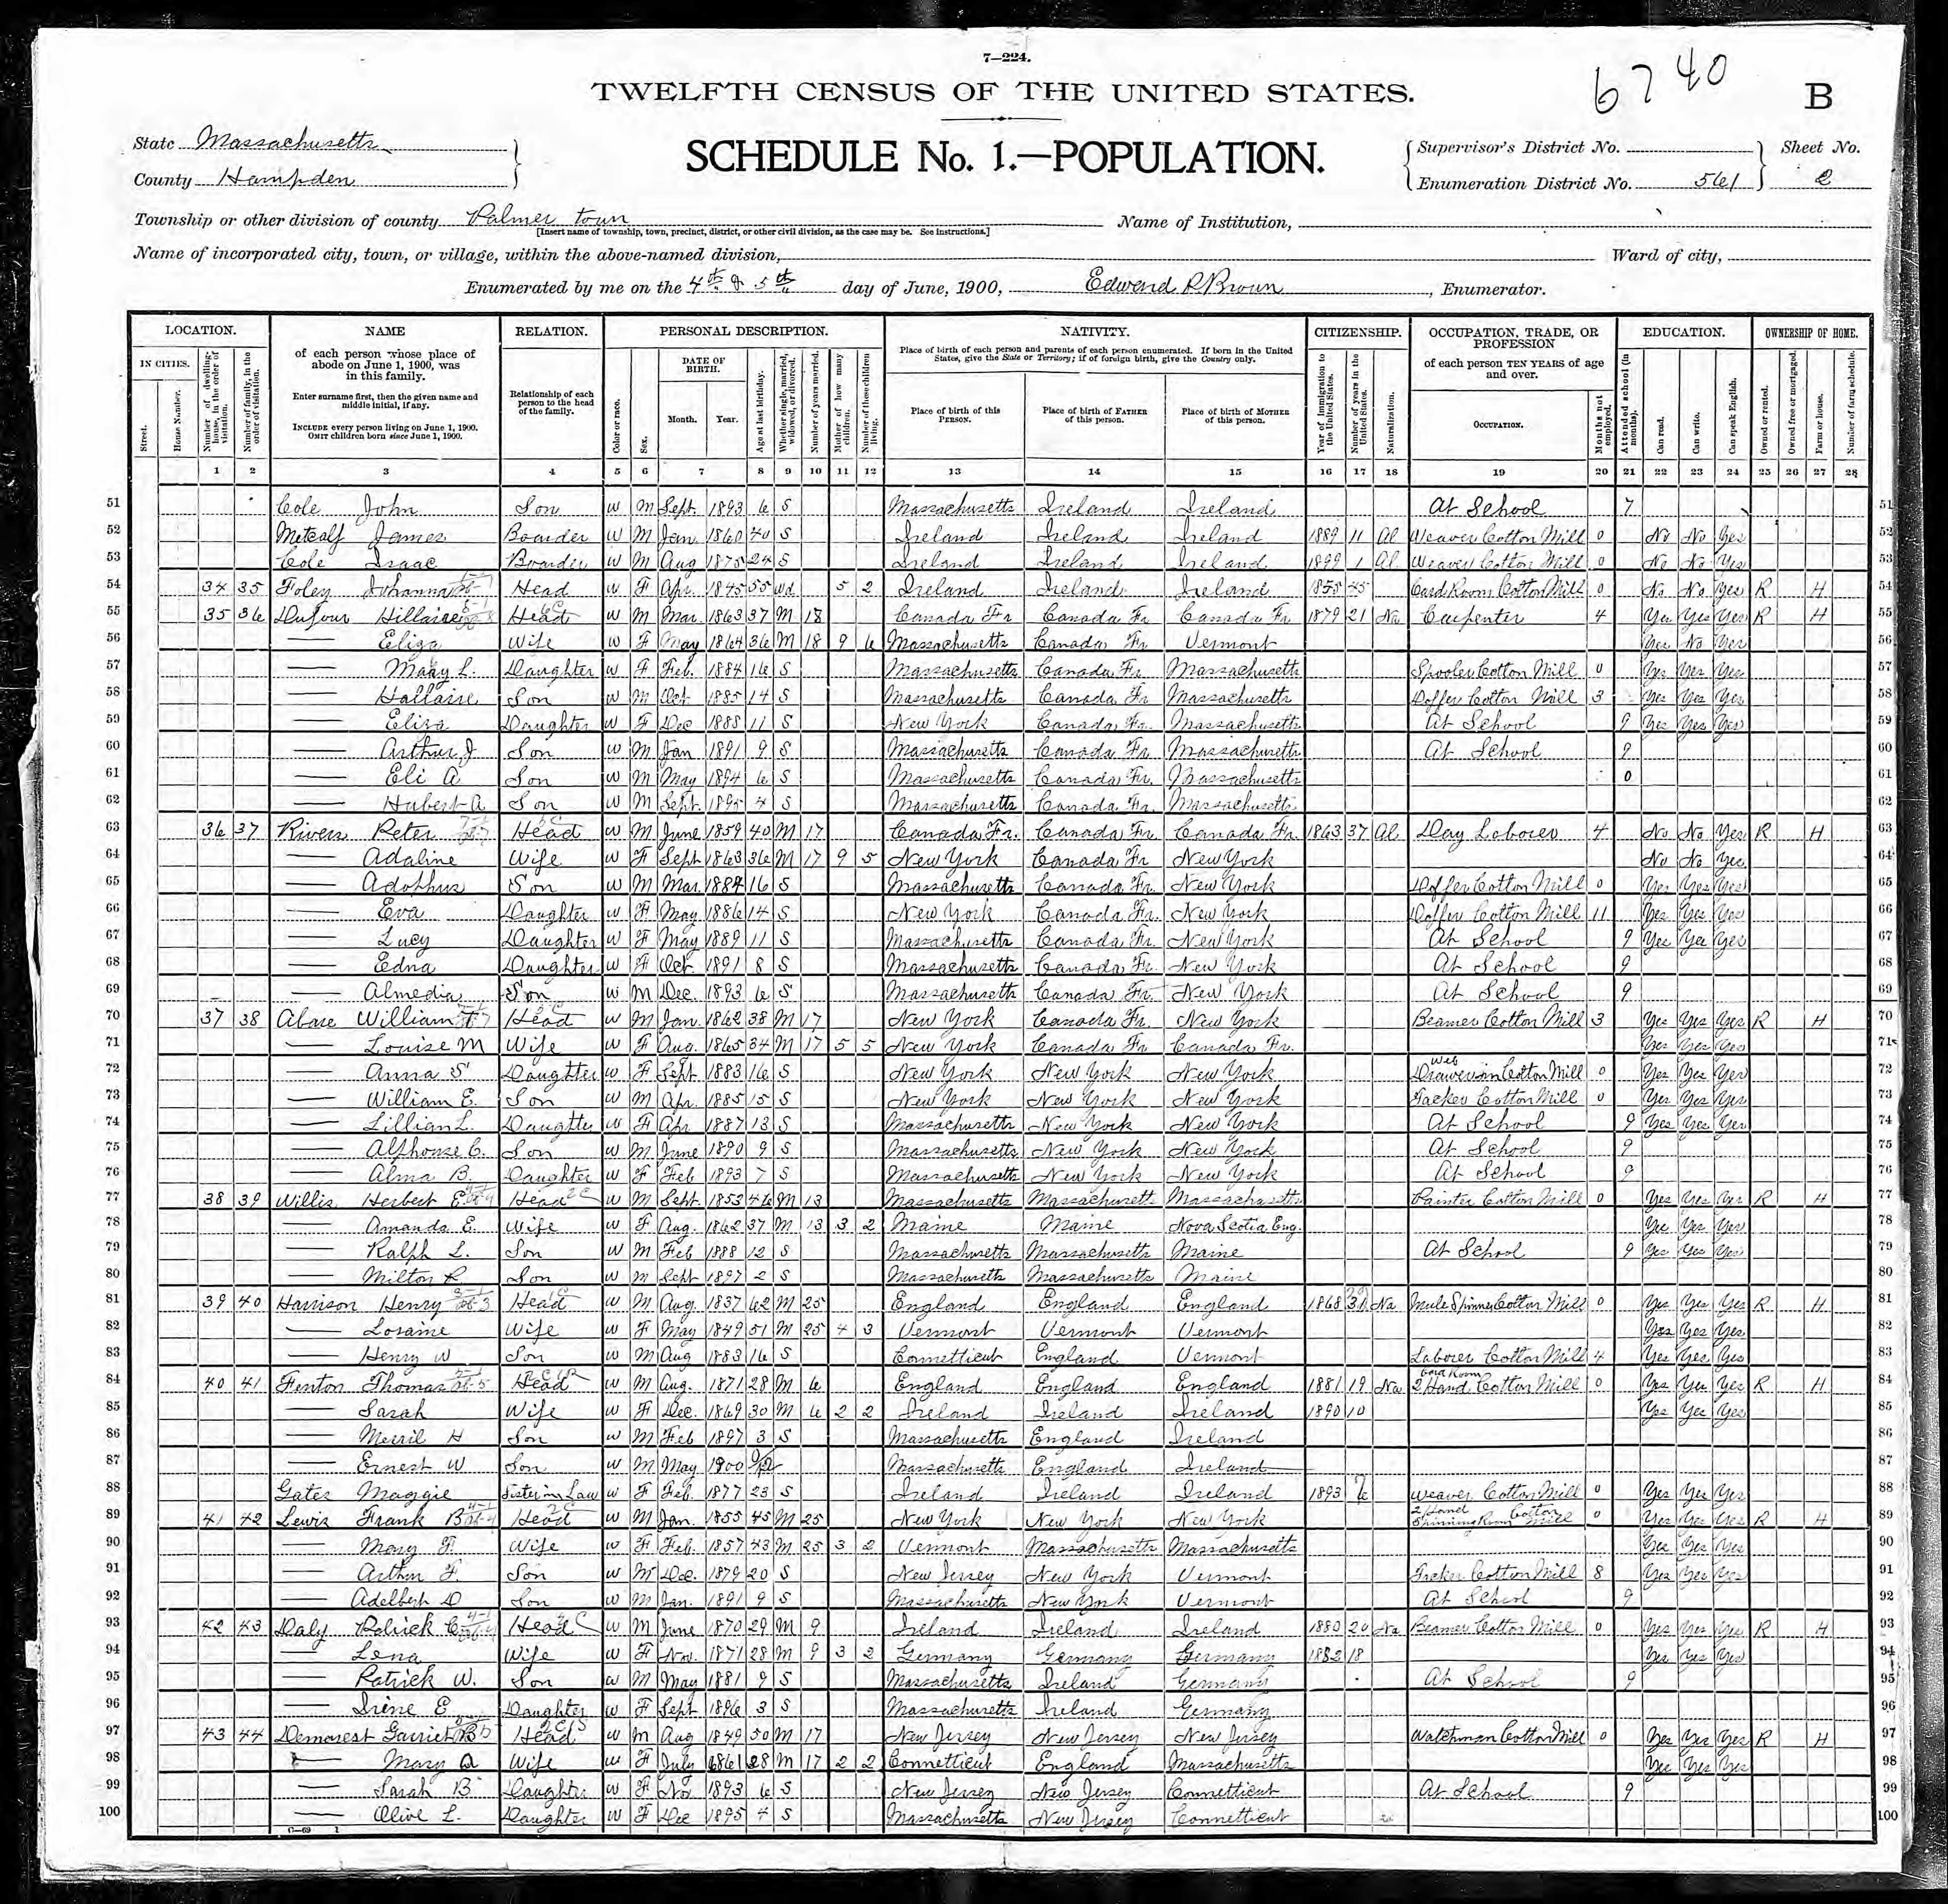 7—224.
6740
TWELFTH CENSUS OF THE UNITED STATES.
B
State Massachusetts
County Hampden
SCHEDULE No. 1.—POPULATION.
Supervisor's District No.
Enumeration District No. 561
Sheet No.
2
Township or other division of county Palmer town
[Insert name of township, town, precinct, district, or other civil division, as the case may be. See instructions.]
Name of Institution,
Name of incorporated city, town, or village, within the above-named division,
Ward of city,
Enumerated by me on the 4th & 5th day of June, 1900, Edward P Brown, Enumerator.
LOCATION. NAME RELATION. PERSONAL DESCRIPTION. NATIVITY. CITIZENSHIP. OCCUPATION, TRADE, OR PROFESSION EDUCATION. OWNERSHIP OF HOME.
IN CITIES. Street. House Number. Number of dwelling-house, in the order of visitation. Number of family, in the order of visitation.
of each person whose place of abode on June 1, 1900, was in this family.
Enter surname first, then the given name and middle initial, if any.
INCLUDE every person living on June 1, 1900. OMIT children born since June 1, 1900.
Relationship of each person to the head of the family.
Color or race. Sex. DATE OF BIRTH. Month. Year. Age at last birthday. Whether single, married, widowed, or divorced. Number of years married. Mother of how many children. Number of these children living.
Place of birth of each person and parents of each person enumerated. If born in the United States, give the State or Territory; if of foreign birth, give the Country only.
Place of birth of this PERSON. Place of birth of FATHER of this person. Place of birth of MOTHER of this person.
Year of immigration to the United States. Number of years in the United States. Naturalization.
of each person TEN YEARS of age and over.
OCCUPATION. Months not employed.
Attended school (in months). Can read. Can write. Can speak English.
Owned or rented. Owned free or mortgaged. Farm or house. Number of farm schedule.
1 2 3 4 5 6 7 8 9 10 11 12 13 14 15 16 17 18 19 20 21 22 23 24 25 26 27 28
51 Cole John Son W M Sept 1893 6 S Massachusetts Ireland Ireland At School 7 51
52 Metcalf James Boarder W M Jan 1860 40 S Ireland Ireland Ireland 1889 11 Al Weaver Cotton Mill 0 No No Yes 52
53 Cole Isaac Boarder W M Aug 1875 24 S Ireland Ireland Ireland 1899 1 Al Weaver Cotton Mill 0 No No Yes 53
54 34 35 Foley Johanna Head W F Apr. 1845 55 Wd 5 2 Ireland Ireland Ireland 1855 45 Card Room Cotton Mill 0 No No Yes R H 54
55 35 36 Dufour Hillaire Head W M Mar. 1863 37 M 18 Canada Fr Canada Fr Canada Fr 1879 21 Na Carpenter 4 Yes Yes Yes R H 55
56 — Eliza Wife W F May 1864 36 M 18 9 6 Massachusetts Canada Fr Vermont Yes No Yes 56
57 — Mary L. Daughter W F Feb. 1884 16 S Massachusetts Canada Fr Massachusetts Spooler Cotton Mill 0 Yes Yes Yes 57
58 — Hallaire Son W M Oct 1885 14 S Massachusetts Canada Fr Massachusetts Doffer Cotton Mill 3 Yes Yes Yes 58
59 — Eliza Daughter W F Dec 1888 11 S New York Canada Fr. Massachusetts At School 9 Yes Yes Yes 59
60 — Arthur J Son W M Jan 1891 9 S Massachusetts Canada Fr Massachusetts At School 9 60
61 — Eli A Son W M May 1894 6 S Massachusetts Canada Fr. Massachusetts 0 61
62 — Hubert A Son W M Sept 1895 4 S Massachusetts Canada Fr. Massachusetts 62
63 36 37 Rivers Peter Head W M June 1859 40 M 17 Canada Fr. Canada Fr Canada Fr. 1863 37 Al Day Laborer 4 No No Yes R H 63
64 — Adaline Wife W F Sept 1863 36 M 17 9 5 New York Canada Fr New York No No Yes 64
65 — Adolphus Son W M Mar. 1884 16 S Massachusetts Canada Fr. New York Doffer Cotton Mill 0 Yes Yes Yes 65
66 — Eva Daughter W F May 1886 14 S New York Canada Fr. New York Doffer Cotton Mill 11 Yes Yes Yes 66
67 — Lucy Daughter W F May 1889 11 S Massachusetts Canada Fr. New York At School 9 Yes Yes Yes 67
68 — Edna Daughter W F Oct. 1891 8 S Massachusetts Canada Fr. New York At School 9 68
69 — Almedia Son W M Dec. 1893 6 S Massachusetts Canada Fr New York At School 9 69
70 37 38 Abare William Head W M Jan. 1862 38 M 17 New York Canada Fr. New York Beamer Cotton Mill 3 Yes Yes Yes R H 70
71 — Louise M Wife W F Aug. 1865 34 M 17 5 5 New York Canada Fr Canada Fr. Yes Yes Yes 71
72 — Anna S Daughter W F Sept 1883 16 S New York New York New York Web Drawer in Cotton Mill 0 Yes Yes Yes 72
73 — William E. Son W M Apr. 1885 15 S New York New York New York Tacker Cotton Mill 0 Yes Yes Yes 73
74 — Lillian L. Daughter W F Apr 1887 13 S Massachusetts New York New York At School 9 Yes Yes Yes 74
75 — Alphonse C. Son W M June 1890 9 S Massachusetts New York New York At School 9 75
76 — Alma B. Daughter W F Feb 1893 7 S Massachusetts New York New York At School 9 76
77 38 39 Willis Herbert E Head W M Sept 1853 46 M 13 Massachusetts Massachusetts Massachusetts Painter Cotton Mill 0 Yes Yes Yes R H 77
78 — Amanda E. Wife W F Aug. 1862 37 M 13 3 2 Maine Maine Nova Scotia Eng. Yes Yes Yes 78
79 — Ralph L. Son W M Feb 1888 12 S Massachusetts Massachusetts Maine At School 9 Yes Yes Yes 79
80 — Milton R Son W M Sept 1897 2 S Massachusetts Massachusetts Maine 80
81 39 40 Harrison Henry Head W M Aug. 1837 62 M 25 England England England 1868 Na Mule Spinner Cotton Mill 0 Yes Yes Yes R H 81
82 — Loraine Wife W F May 1849 51 M 25 4 3 Vermont Vermont Vermont Yes Yes Yes 82
83 — Henry W Son W M Aug 1883 16 S Connetticut England Vermont Laborer Cotton Mill 4 Yes Yes Yes 83
84 40 41 Fenton Thomas Head W M Aug. 1871 28 M 6 England England England 1881 19 Na Card Room 2 Hand Cotton Mill 0 Yes Yes Yes R H 84
85 — Sarah Wife W F Dec. 1869 30 M 6 2 2 Ireland Ireland Ireland 1890 10 Yes Yes Yes 85
86 — Merril H Son W M Feb 1897 3 S Massachusetts England Ireland 86
87 — Ernest W Son W M May 1900 0/12 Massachusetts England Ireland 87
88 Gates Maggie Sister in Law W F Feb. 1877 23 S Ireland Ireland Ireland 1893 Weaver Cotton Mill 0 Yes Yes Yes 88
89 41 42 Lewis Frank B Head W M Jan. 1855 45 M 25 New York New York New York 2 Hand Spinning Room Cotton Mill 0 Yes Yes Yes R H 89
90 — Mary F. Wife W F Feb. 1857 43 M 25 3 2 Vermont Massachusetts Massachusetts Yes Yes Yes 90
91 — Arthur F. Son W M Dec. 1879 20 S New Jersey New York Vermont Cotton Mill 8 Yes Yes Yes 91
92 — Adelbert D Son W M Jan. 1891 9 S Massachusetts New York Vermont At School 9 92
93 42 43 Daly Patrick C Head W M June 1870 29 M 9 Ireland Ireland Ireland 1880 20 Na Beamer Cotton Mill 0 Yes Yes Yes R H 93
94 — Lena Wife W F Nov. 1871 28 M 9 3 2 Germany Germany Germany 1882 18 Yes Yes Yes 94
95 — Patrick W. Son W M May 1881 9 S Massachusetts Ireland Germany At School 9 95
96 — Irene E Daughter W F Sept 1896 3 S Massachusetts Ireland Germany 96
97 43 44 Demarest Garriet Head W M Aug 1849 50 M 17 New Jersey New Jersey New Jersey Watchman Cotton Mill 0 Yes Yes Yes R H 97
98 — Mary A Wife W F July 1861 28 M 17 2 2 Connetticut England Massachusetts Yes Yes Yes 98
99 — Sarah B Daughter W F Nov 1893 6 S New Jersey New Jersey Connetticut At School 9 99
100 — Olive L. Daughter W F Dec 1895 4 S Massachusetts New Jersey Connetticut 100